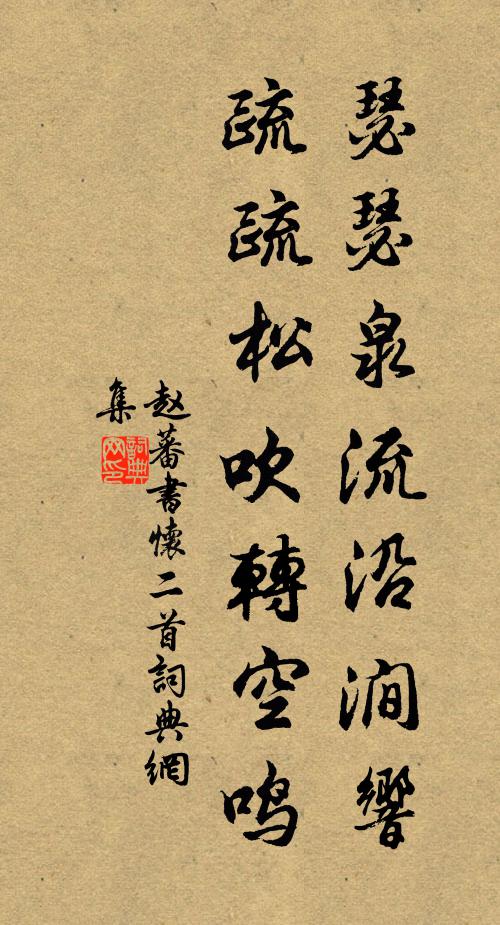 瑟瑟泉流沿澗響
疏疏松吹轉空鸣
赵蕃書懷二首詞典網
集
詞典
网印